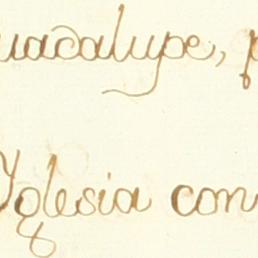 uadalupe, p
Yglesia con